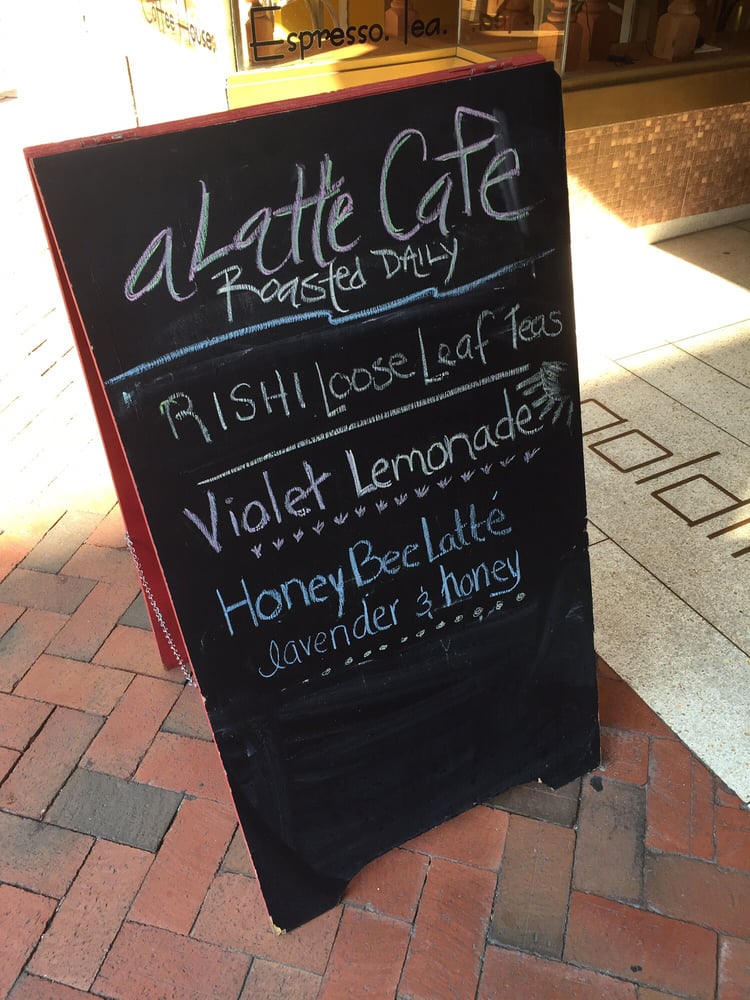 Coffee Houses
Espresso. Tea.
aLatte Cafe
Roasted DAILY
RISHI Loose Leaf Teas
Violet Lemonade
Honey Bee Latté
lavender & honey